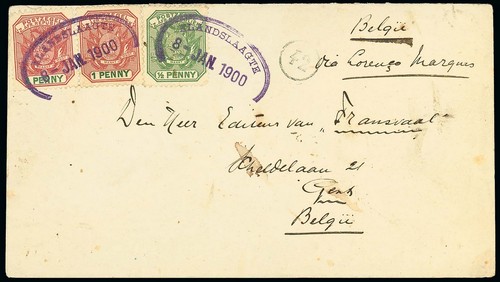 ELANDSLAAGTE
8 JAN. 1900
ELANDSLAAGTE
8 JAN. 1900
PENNY
1 PENNY
½ PENNY
42
België
via Lorenço Marques
Den Heer Editeur van "Transvaal"
Scheldelaan 21
Gent
België